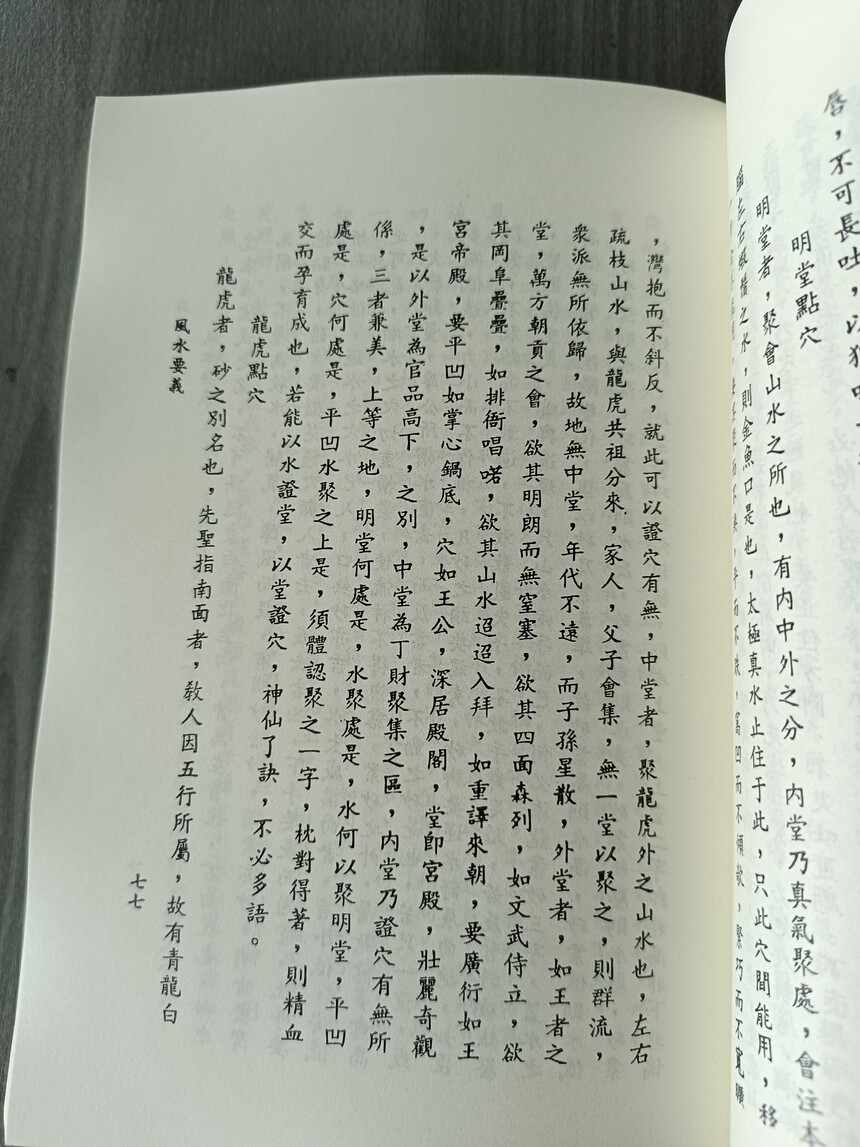 唇，不可長吐，以
明堂點穴
明堂者，聚會山水之所也，有內中外之分，內堂乃真氣聚處，會注本
之水，則金魚口是也，太極真水止住于此，只此穴間能用，移
，灣抱而不斜反，就此可以證穴有無，中堂者，聚龍虎外之山水也，左右
疏枝山水，與龍虎共祖分來，家人，父子會集，無一堂以聚之，則群流，
衆派無所依歸，故地無中堂，年代不遠，而子孫星散，外堂者，如王者之
堂，萬方朝貢之會，欲其明朗而無窒塞，欲其四面森列，如文武侍立，欲
其岡阜疊疊，如排衙唱喏，欲其山水迢迢入拜，如重譯來朝，要廣衍如王
宮帝殿，要平凹如掌心鍋底，穴如王公，深居殿閣，堂即宮殿，壯麗奇觀
，是以外堂為官品高下，之別，中堂為丁財聚集之區，內堂乃證穴有無所
係，三者兼美，上等之地，明堂何處是，水聚處是，水何以聚明堂，平凹
處是，穴何處是，平凹水聚之上是，須體認聚之一字，枕對得著，則精血
交而孕育成也，若能以水證堂，以堂證穴，神仙了訣，不必多語。
龍虎點穴
龍虎者，砂之別名也，先聖指南面者，教人因五行所屬，故有青龍白
風水要義
七七